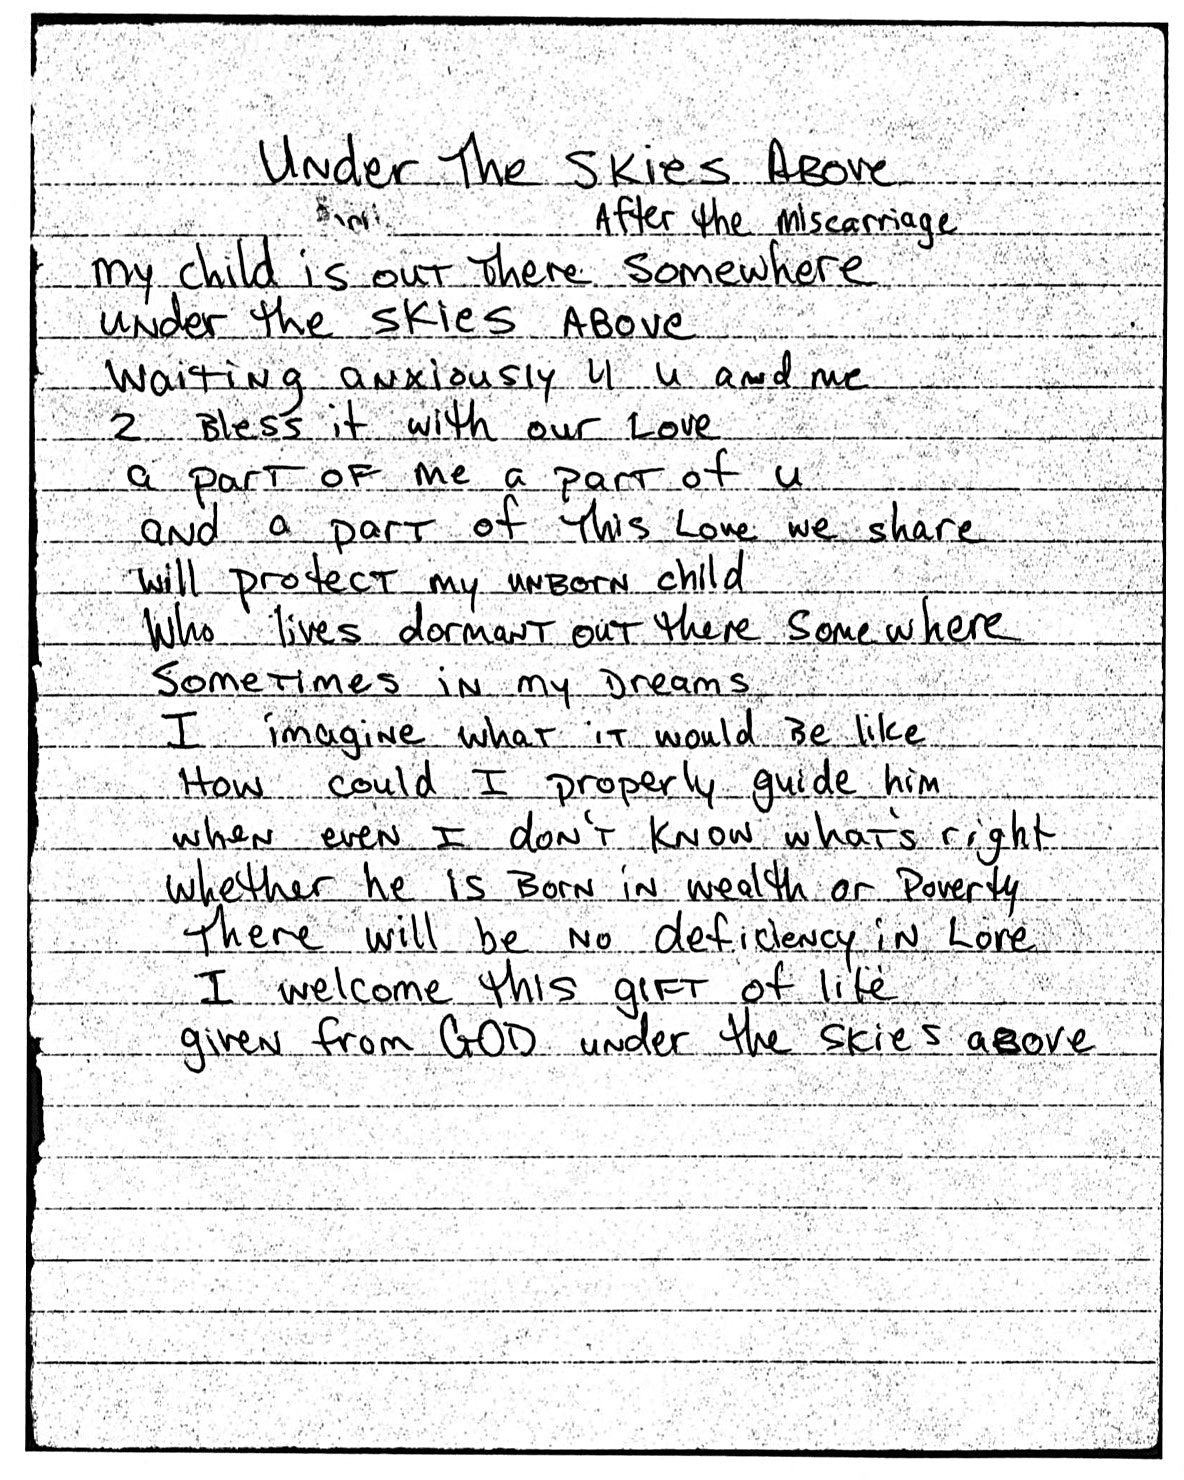 Under The Skies Above
After the Miscarriage
my child is out there somewhere
under the skies Above
waiting anxiously 4 u and me
2 Bless it with our Love
a part of me a part of u
and a part of this Love we share
will protect my unborn child
Who lives dormant out there somewhere
Sometimes in my Dreams
I imagine what it would Be like
How could I properly guide him
when even I don't know what's right
whether he is Born in wealth or Poverty
there will be no deficiency in Love
I welcome this gift of life
given from GOD under the skies above